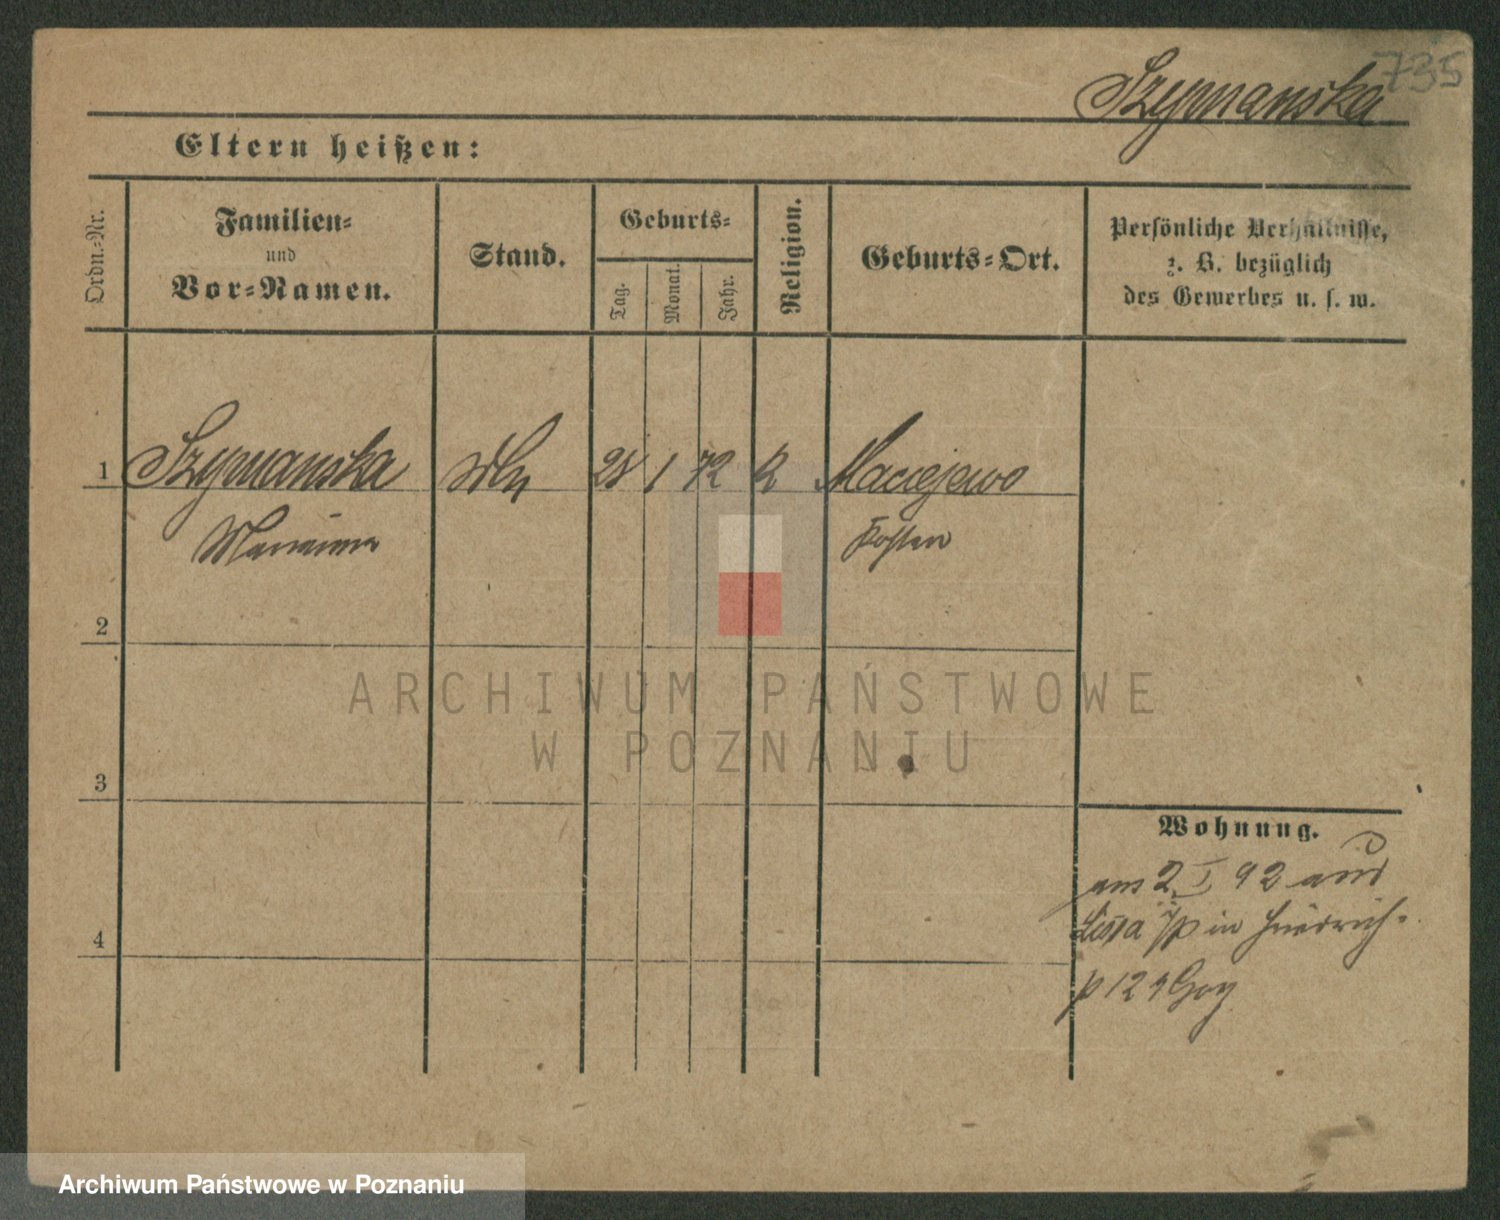 735
Szymanska
Eltern heißen:
Ordn.=Nr.
Familien=
und
Vor=Namen.
Stand.
Geburts=
Tag.
Monat.
Jahr.
Religion.
Geburts=Ort.
Persönliche Verhältnisse,
z. B. bezüglich
des Gewerbes u. s. w.
1 Szymanska 1 72 Maciejewo
Marianna Kosten
2
3
4
Wohnung.
am 2 I 92 aus
Lissa i/P in Friedrich=
ARCHIWUM PAŃSTWOWE
W POZNANIU
Archiwum Państwowe w Poznaniu